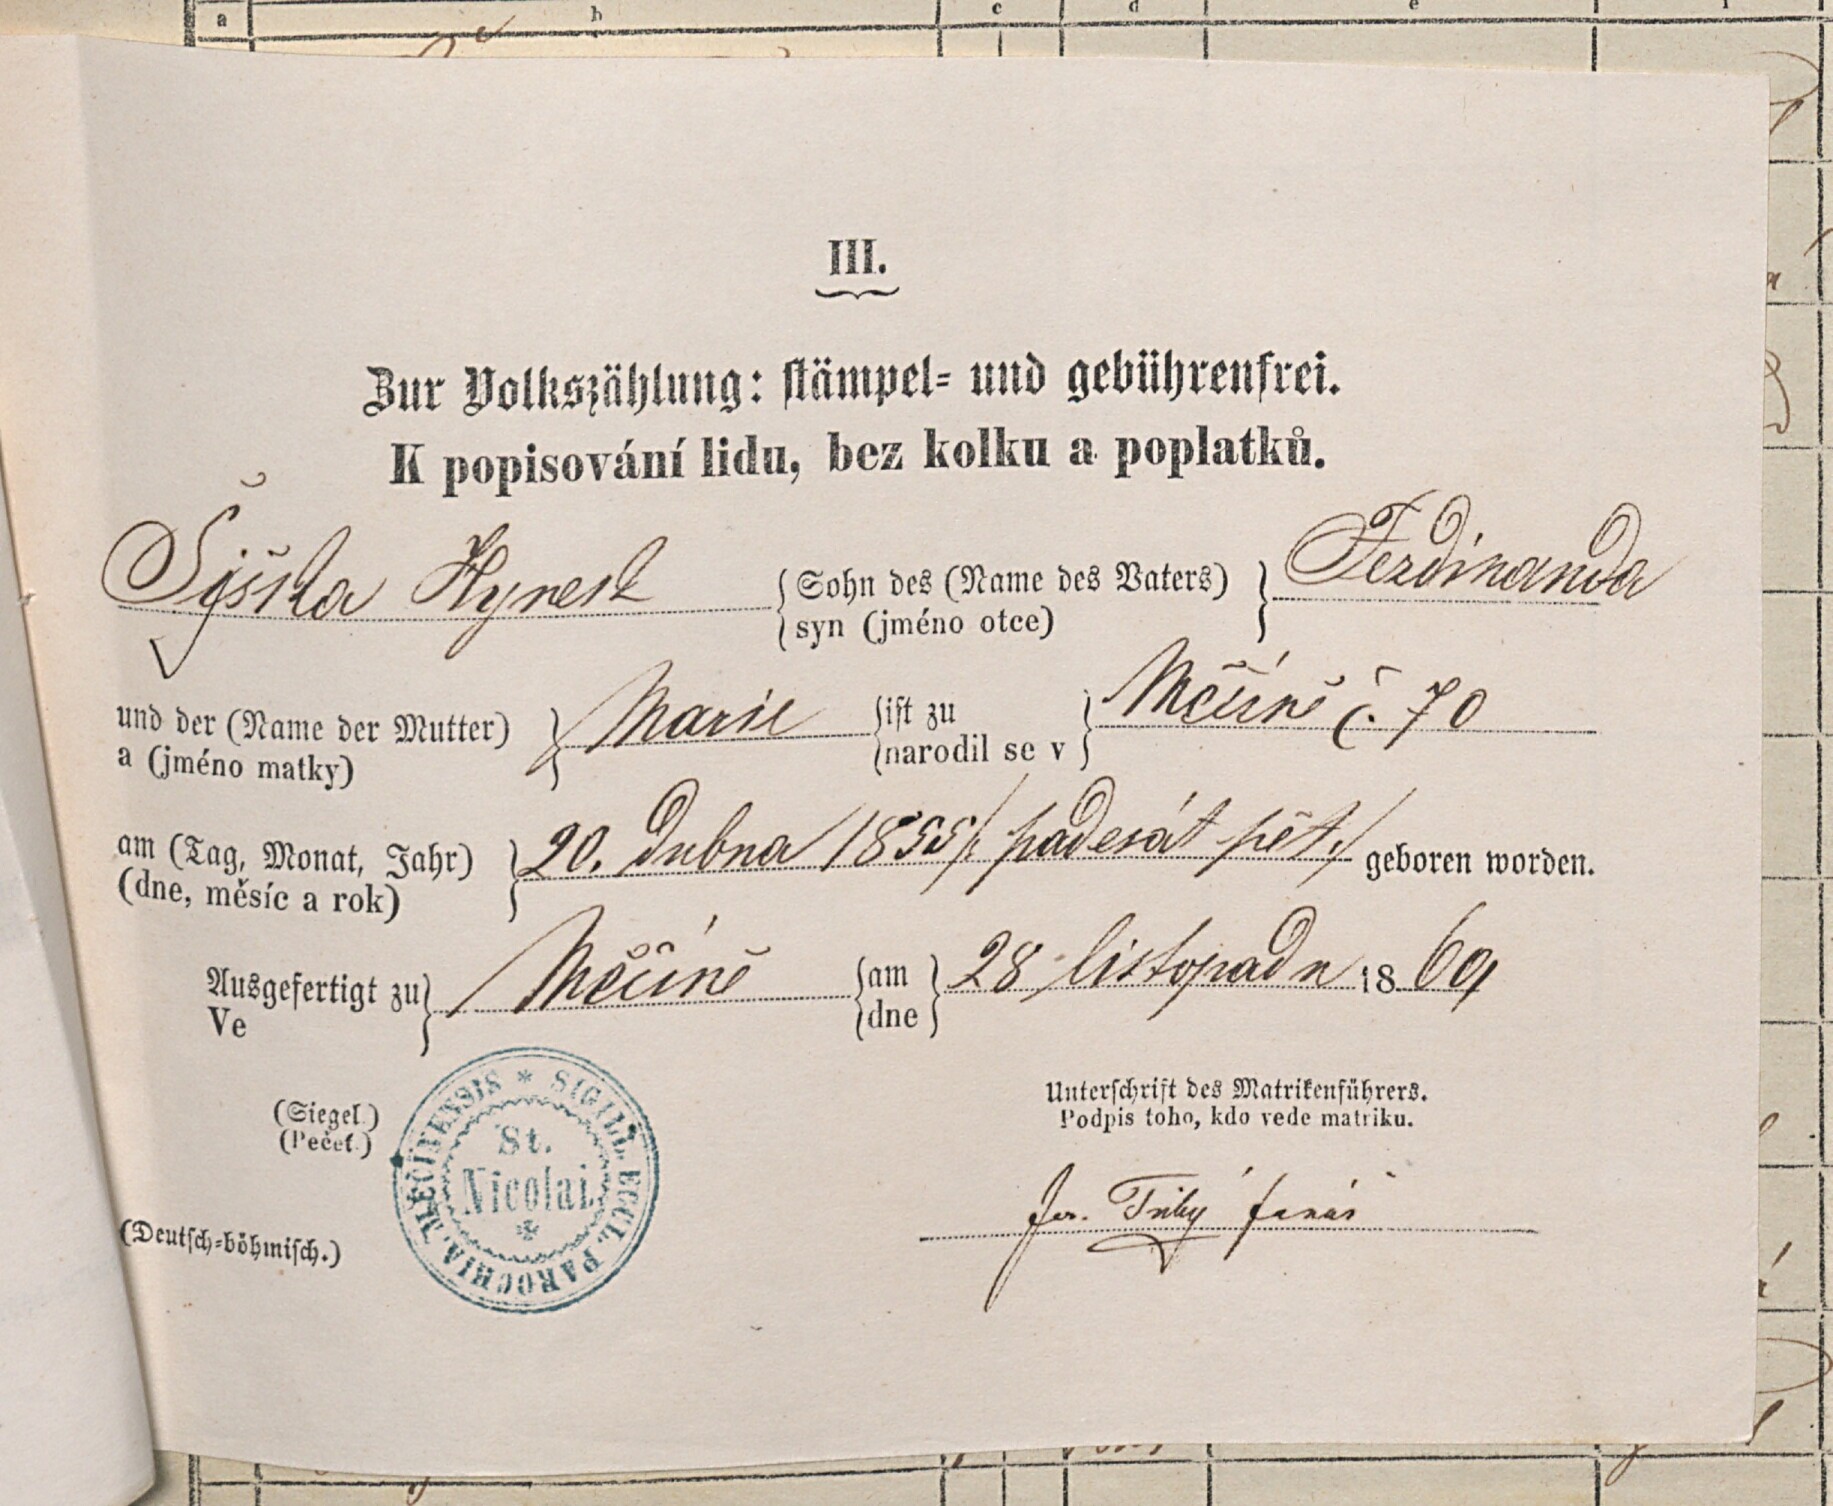 a b c d e f
III.
Zur Volkszählung: stämpel- und gebührenfrei.
K popisování lidu, bez kolku a poplatků.
Šyška Hynek { Sohn des (Name des Vaters) } Ferdinanda
syn (jméno otce)
und der (Name der Mutter) } Marie { ist zu } Měčíně č. 70
a (jméno matky) narodil se v
am (Tag, Monat, Jahr) } 20. dubna 1855 /: padesát pět :/ geboren worden.
(dne, měsíc a rok)
Ausgefertigt zu } Měčíně { am } 28 listopadu 1869
Ve dne
(Siegel.)
(Pečeť.)
SIGILL. ECCL. PAROCHIA. MĚČINENSIS *
St.
Nicolai
Unterschrift des Matrikenführers.
Podpis toho, kdo vede matriku.
farář
(Deutsch-böhmisch.)